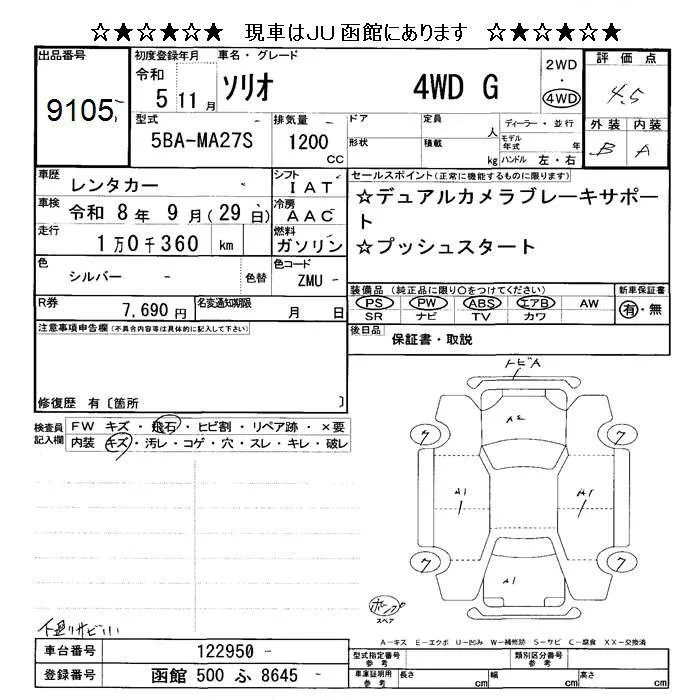 ☆★☆★☆★ 現車はJU函館にあります ☆★☆★☆★
出品番号
9105
初度登録年月
令和
5 11月
車名・グレード
ソリオ 4WD G
2WD
・
4WD
評価点
4.5
外装 内装
B A
型式
5BA-MA27S
排気量
1200
CC
ドア
形状
定員
人
積載
kg
ディーラー・並行
モデル年式 年
ハンドル 左・右
車歴
レンタカー
シフト
IAT
車検
令和 8年 9月(29日)
冷房
AAC
走行
1万0千360 km
燃料
ガソリン
セールスポイント(正常に機能するものに限ります)
☆デュアルカメラブレーキサポー
ト
☆プッシュスタート
色
シルバー
色替
色コード
ZMU
R券
7,690円
名変通知期限
月 日
装備品(純正品に限り○をつけてください)
PS PW ABS エアB AW
SR ナビ TV カワ
新車保証書
有・無
後日品
保証書・取説
注意事項申告欄(不具合内容等は具体的に記入して下さい)
修復歴 有〔箇所 〕
検査員
記入欄
FW キズ・飛石・ヒビ割・リペア跡・×要
内装 キズ・汚レ・コゲ・穴・スレ・キレ・破レ
トビA
A2
7 7
A1 A1
7 7
A1
スペア
A-キズ E-エクボ U-凹み W-補修跡 S-サビ C-腐食 XX-交換済
車台番号
122950
登録番号
函館 500 ふ 8645
型式指定番号
参考
類別区分番号
参考
車庫証明用
参考
長さ cm 幅 cm 高さ cm